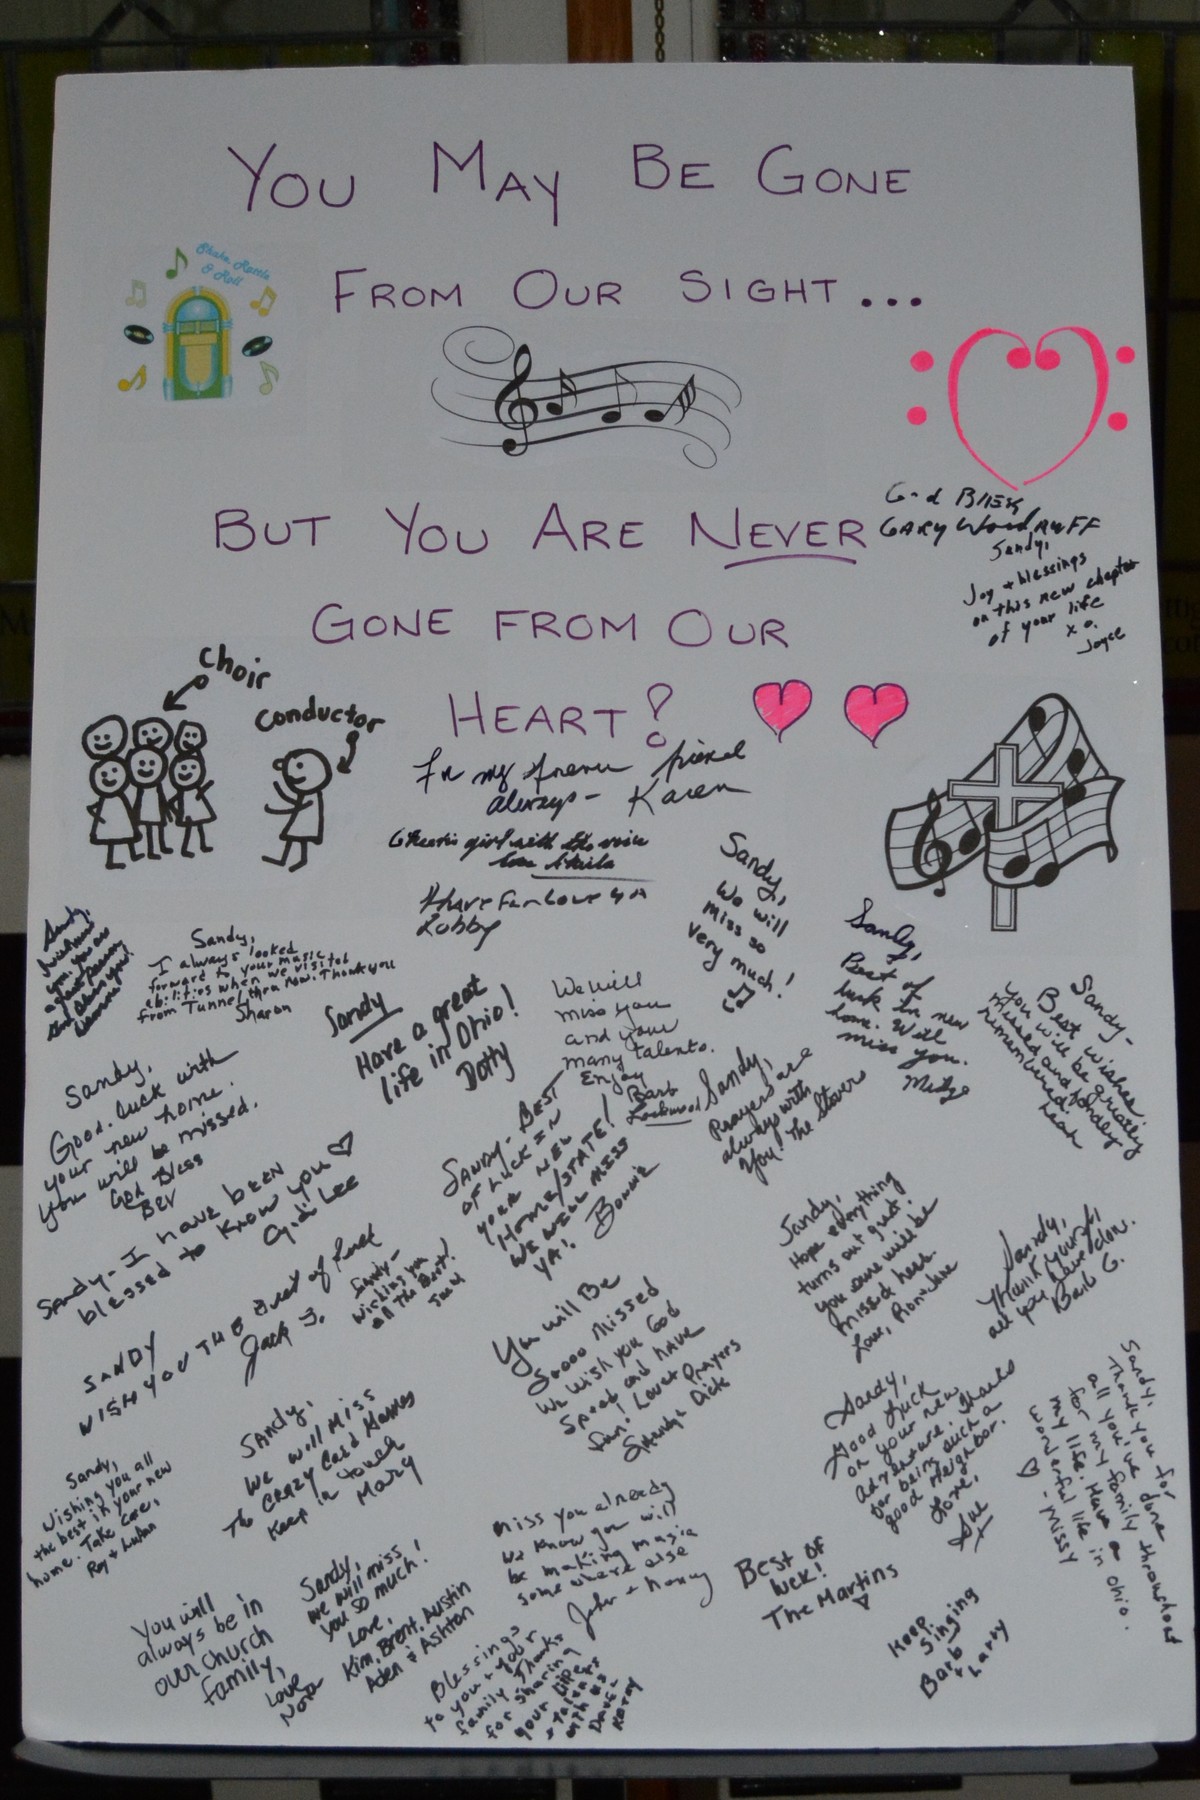 YOU MAY BE GONE
Shake, Rattle
& Roll
FROM OUR SIGHT...
BUT YOU ARE NEVER
GONE FROM OUR
HEART!
God Bless
GARY WoodRuFF
Sandy,
Joy + blessings
on this new chapter
of your life
x o.
Joyce
Choir
conductor
In my friend
always - Karen
girl with the voice
Love Sheila
Have Fun Love ya
Lobby
Sandy,
We will
miss so
very much!
Sandy,
Best of
luck in new
home. Will
miss you.
Midge
Sandy-
Best wishes
You will be greatly
missed and fondly
remembered.
Sandy,
wishing
you, you are
a great person
God bless you!
Sandy,
I always looked
forward to your music
abilities when we visited
from Tunnelthru now. Thank you
Sharon
Sandy
Have a great
life in Ohio!
Dotty
We will
miss you
and your
many talents.
Enjoy
Barb
Lockwood
Sandy,
Prayers are
always with
you! The Stovers
Sandy,
Good luck with
your new home.
you will be missed.
God Bless
Bev
SANDY - BEST
OF LUCK IN
YOUR NEW
HOME/STATE!
WE WILL MISS
YA! Bonnie
Sandy - I have been
blessed to know you
Gidi Lee
Sandy,
Hope everything
turns out great.
you sure will be
missed here.
Love, Ron + Jane
Sandy,
Thank you for
all you have done.
Barb G.
SANDY
WISH YOU THE Best of Luck
Jack J.
Sandy-
Wishing you
all the Best!
You will Be
Soooo missed
We wish you God
Speed and have
fun! Love + Prayers
Dick
Sandy,
We will miss
the crazy Card Games
Keep in touch
Mary
Sandy,
Good Luck
on your new
adventure. Thanks
for being such a
good neighbor.
Love,
Sue
Sandy,
Thank you for
all you've done
for my family throughout
my life. Have a
wonderful life in Ohio.
- Missy
Sandy,
Wishing you all
the best in your new
home. Take Care,
Roy +
Miss you already
we know you will
be making music
somewhere else
John + Nancy
Best of
luck!
The Martins
Sandy,
we will miss
you so much!
Love,
Kim, Brent, Austin
Aden & Ashton
You will
always be in
our church
family,
Love
Nora
Blessings
to you + your
family. Thanks
for sharing
your life
+ talents
with us
Dave +
Kathy
Keep
Singing
Barb
+ Larry